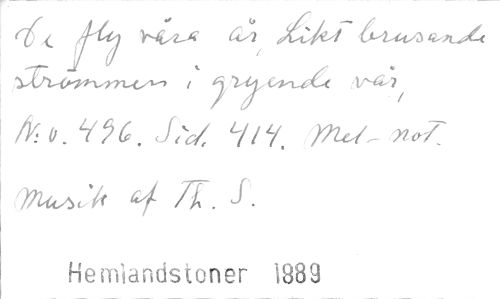 De fly våra år, Likt brusande
strömmen i gryende vår,
N:o. 496. Sid. 414. Mel-not.
Musik af Th. S.
Hemlandstoner 1889